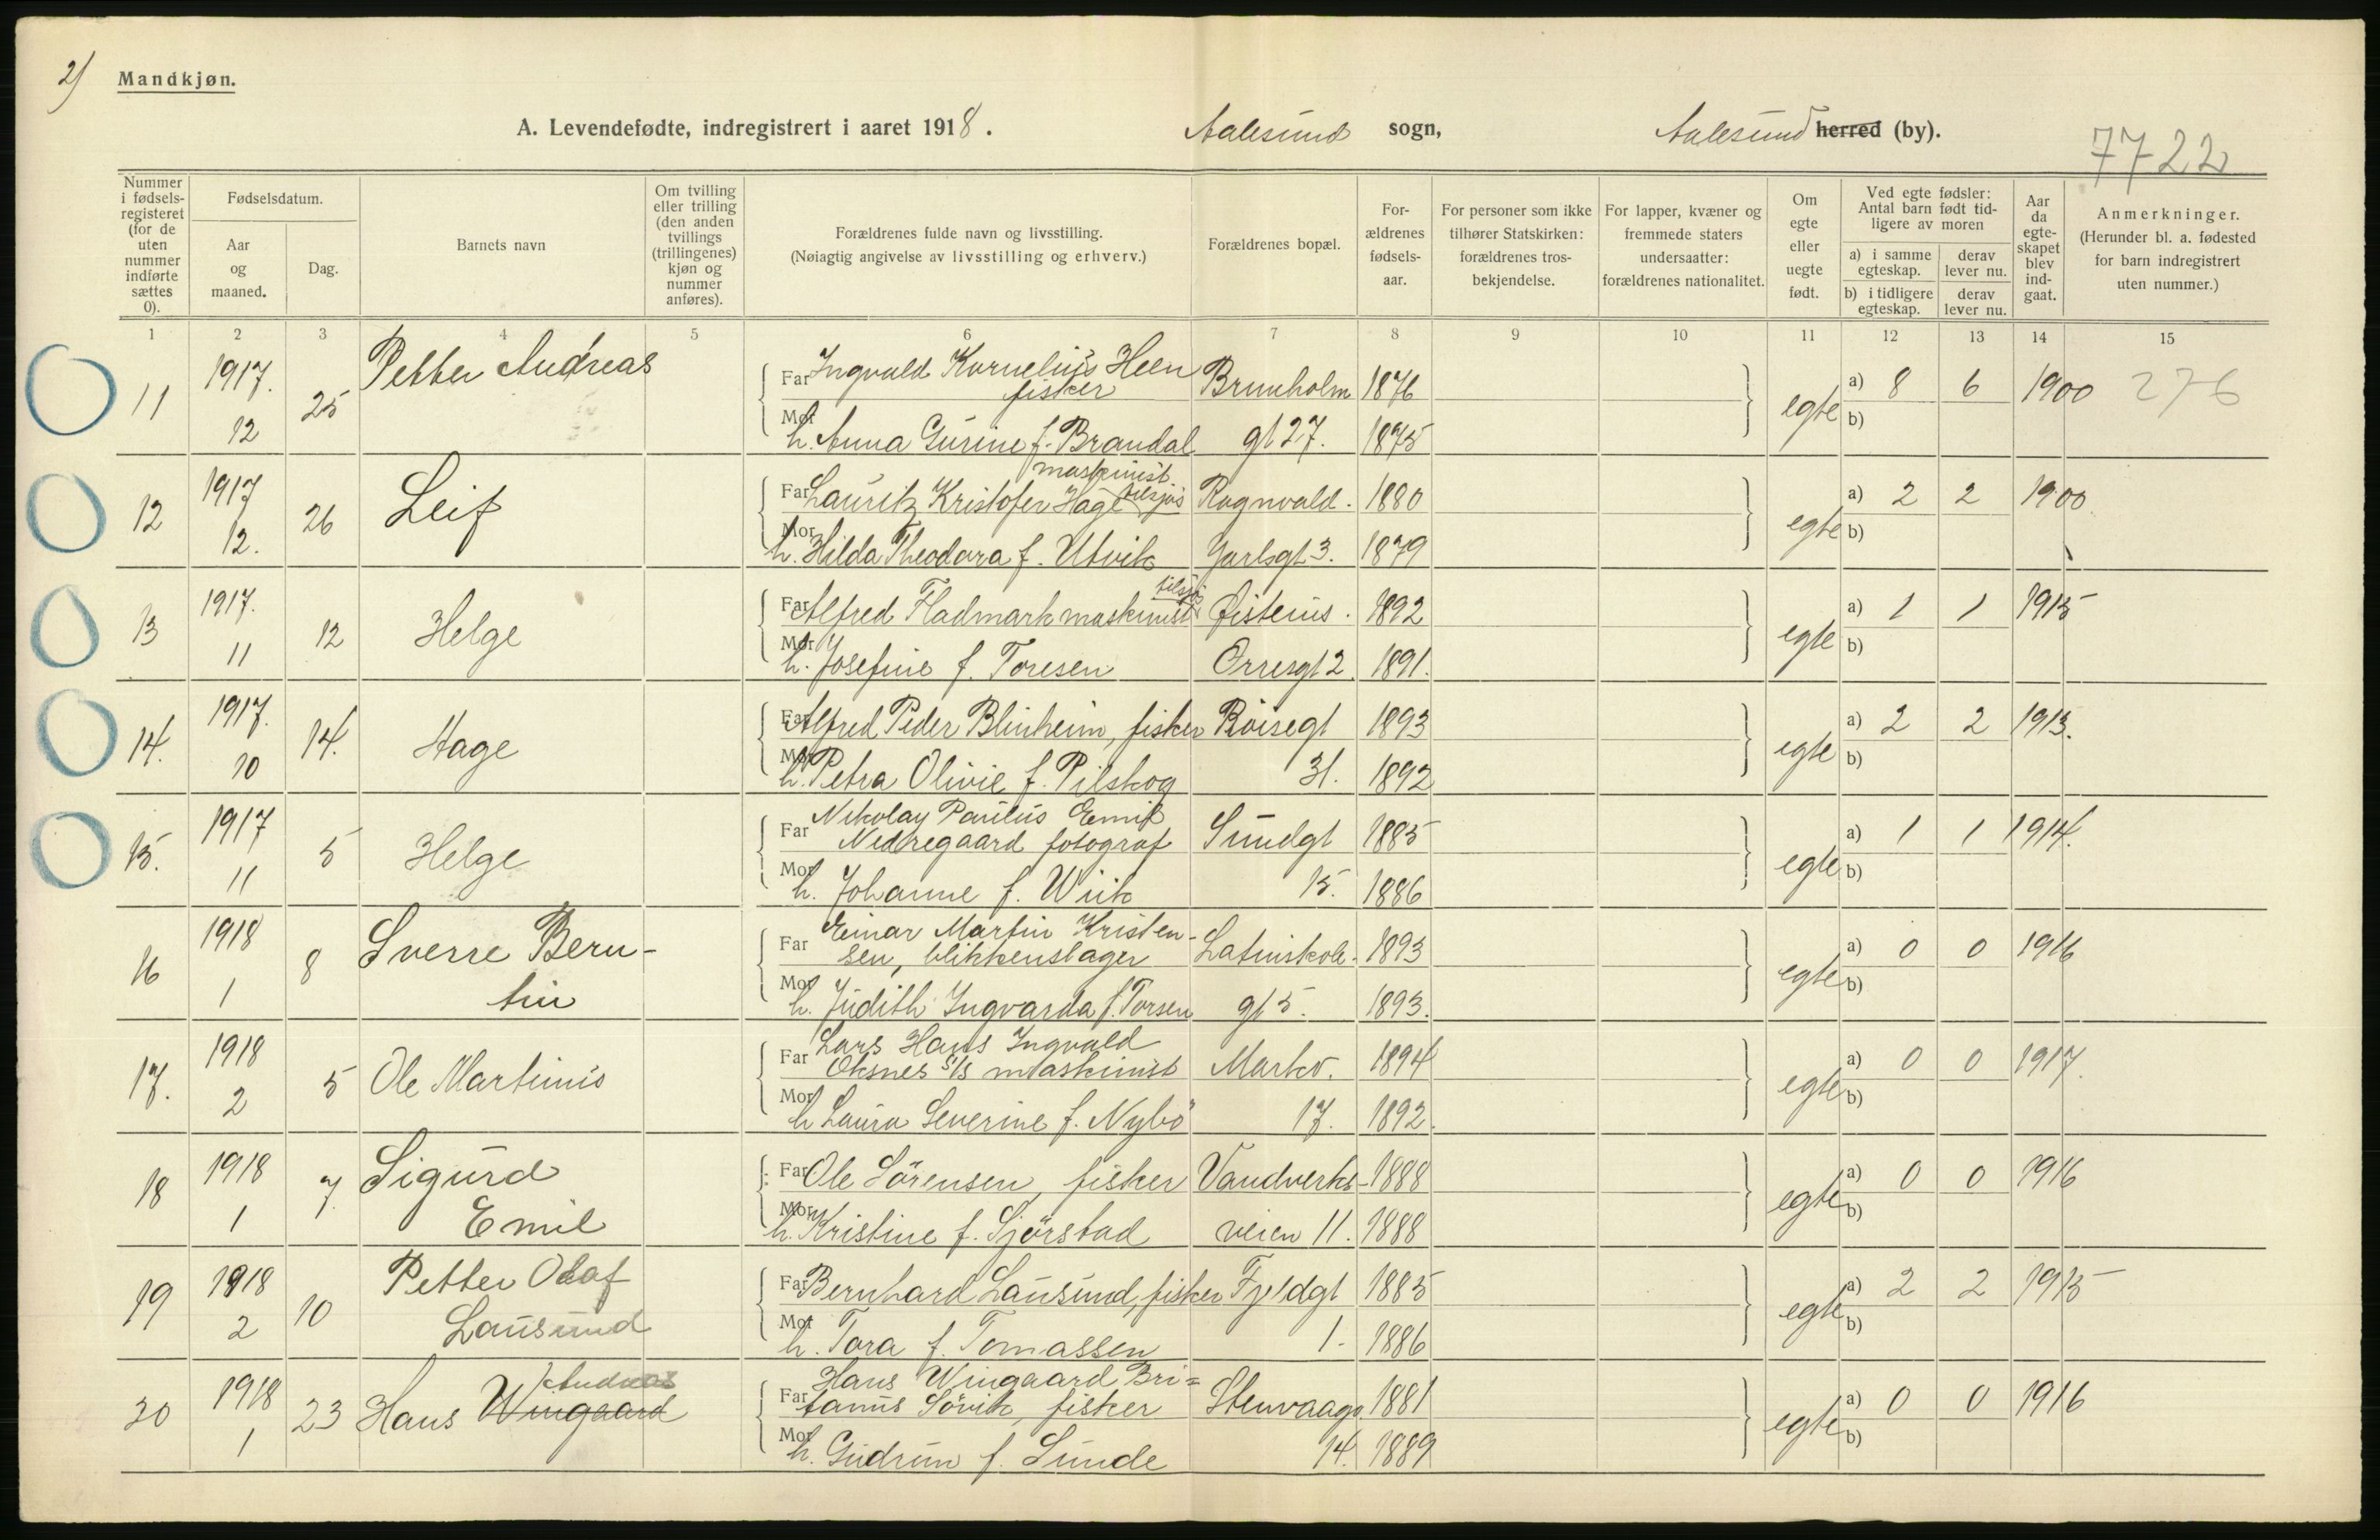 2)
Mandkjøn.
A. Levendefødte, indregistrert i aaret 1918. Aalesund sogn, Aalesund herred (by).
7722
Nummer i fødsels-registeret (for de uten nummer indførte sættes 0).
Fødselsdatum.
Aar og maaned.
Dag.
Barnets navn
Om tvilling eller trilling (den anden tvillings (trillingenes) kjøn og nummer anføres).
Forældrenes fulde navn og livsstilling.
(Nøiagtig angivelse av livsstilling og erhverv.)
Forældrenes bopæl.
For-ældrenes fødsels-aar.
For personer som ikke tilhører Statskirken: forældrenes tros-bekjendelse.
For lapper, kvæner og fremmede staters undersaatter: forældrenes nationalitet.
Om egte eller uegte født.
Ved egte fødsler: Antal barn født tid-ligere av moren
a) i samme egteskap. derav lever nu.
b) i tidligere egteskap. derav lever nu.
Aar da egte-skapet blev ind-gaat.
Anmerkninger.
(Herunder bl. a. fødested for barn indregistrert uten nummer.)
1 2 3 4 5 6 7 8 9 10 11 12 13 14 15
11 1917. 12 25 Petter Andreas
Far Ingvald Kornelius Heen fisker Brunholm 1876
Mor h. Anna Gurine f. Brandal gt 27. 1875
egte a) 8 6 1900 276
b)
12 1917 12. 26 Leif
Far Lauritz Kristofer Hage maskinist tilsjøs Ragnvald. 1880
Mor h. Hilda Theodora f. Utvik Jarlsgt 3. 1879
egte a) 2 2 1900
b)
13 1917. 11 12 Helge
Far Alfred Fladmark maskinist tilsjøs Øisteins. 1892
Mor h. Josefine f. Toresen Orresgt 2. 1891.
egte a) 1 1 1915
b)
14. 1917. 10 14. Hage
Far Alfred Peder Blinheim, fisker Röisegt 1893
Mor h. Petra Olivie f. Pilskog 31. 1892
egte a) 2 2 1913.
b)
15. 1917 11 5 Helge
Far Nikolay Paulus Emil
Nedregaard fotograf Sundgt 1885
Mor h. Johanne f. Wiik 15. 1886
egte a) 1 1 1914.
b)
16 1918 1 8 Sverre Bern-
tin
Far Einar Martin Kristen-
sen, blikkenslager Latinskole- 1893
Mor h. Judith Ingvarda f. Torsen gt 5. 1893.
egte a) 0 0 1916
b)
17. 1918 2 5 Ole Martinus
Far Lars Hans Ingvald
Oksnes s/s maskinist Markv. 1894
Mor h Laura Severine f. Nybö 17. 1892.
egte a) 0 0 1917.
b)
18 1918 1 7. Sigurd
Emil
Far Ole Sörensen, fisker Vandverks- 1888
Mor h. Kristine f. Sjörstad veien 11. 1888
egte a) 0 0 1916
b)
19 1918 2 10 Petter Olaf
Lausund
Far Bernhard Lausund, fisker Fjeldgt 1885
Mor h. Tora f. Tomassen 1- 1886
egte a) 2 2 1915
b)
20 1918 1 23 Hans Wingaard Andreas
Far Hans Wingaard Bri=
tanus Sövik, fisker Stenvaagv. 1881
Mor h. Gudrun f. Sunde 14. 1889
egte a) 0 0 1916
b)